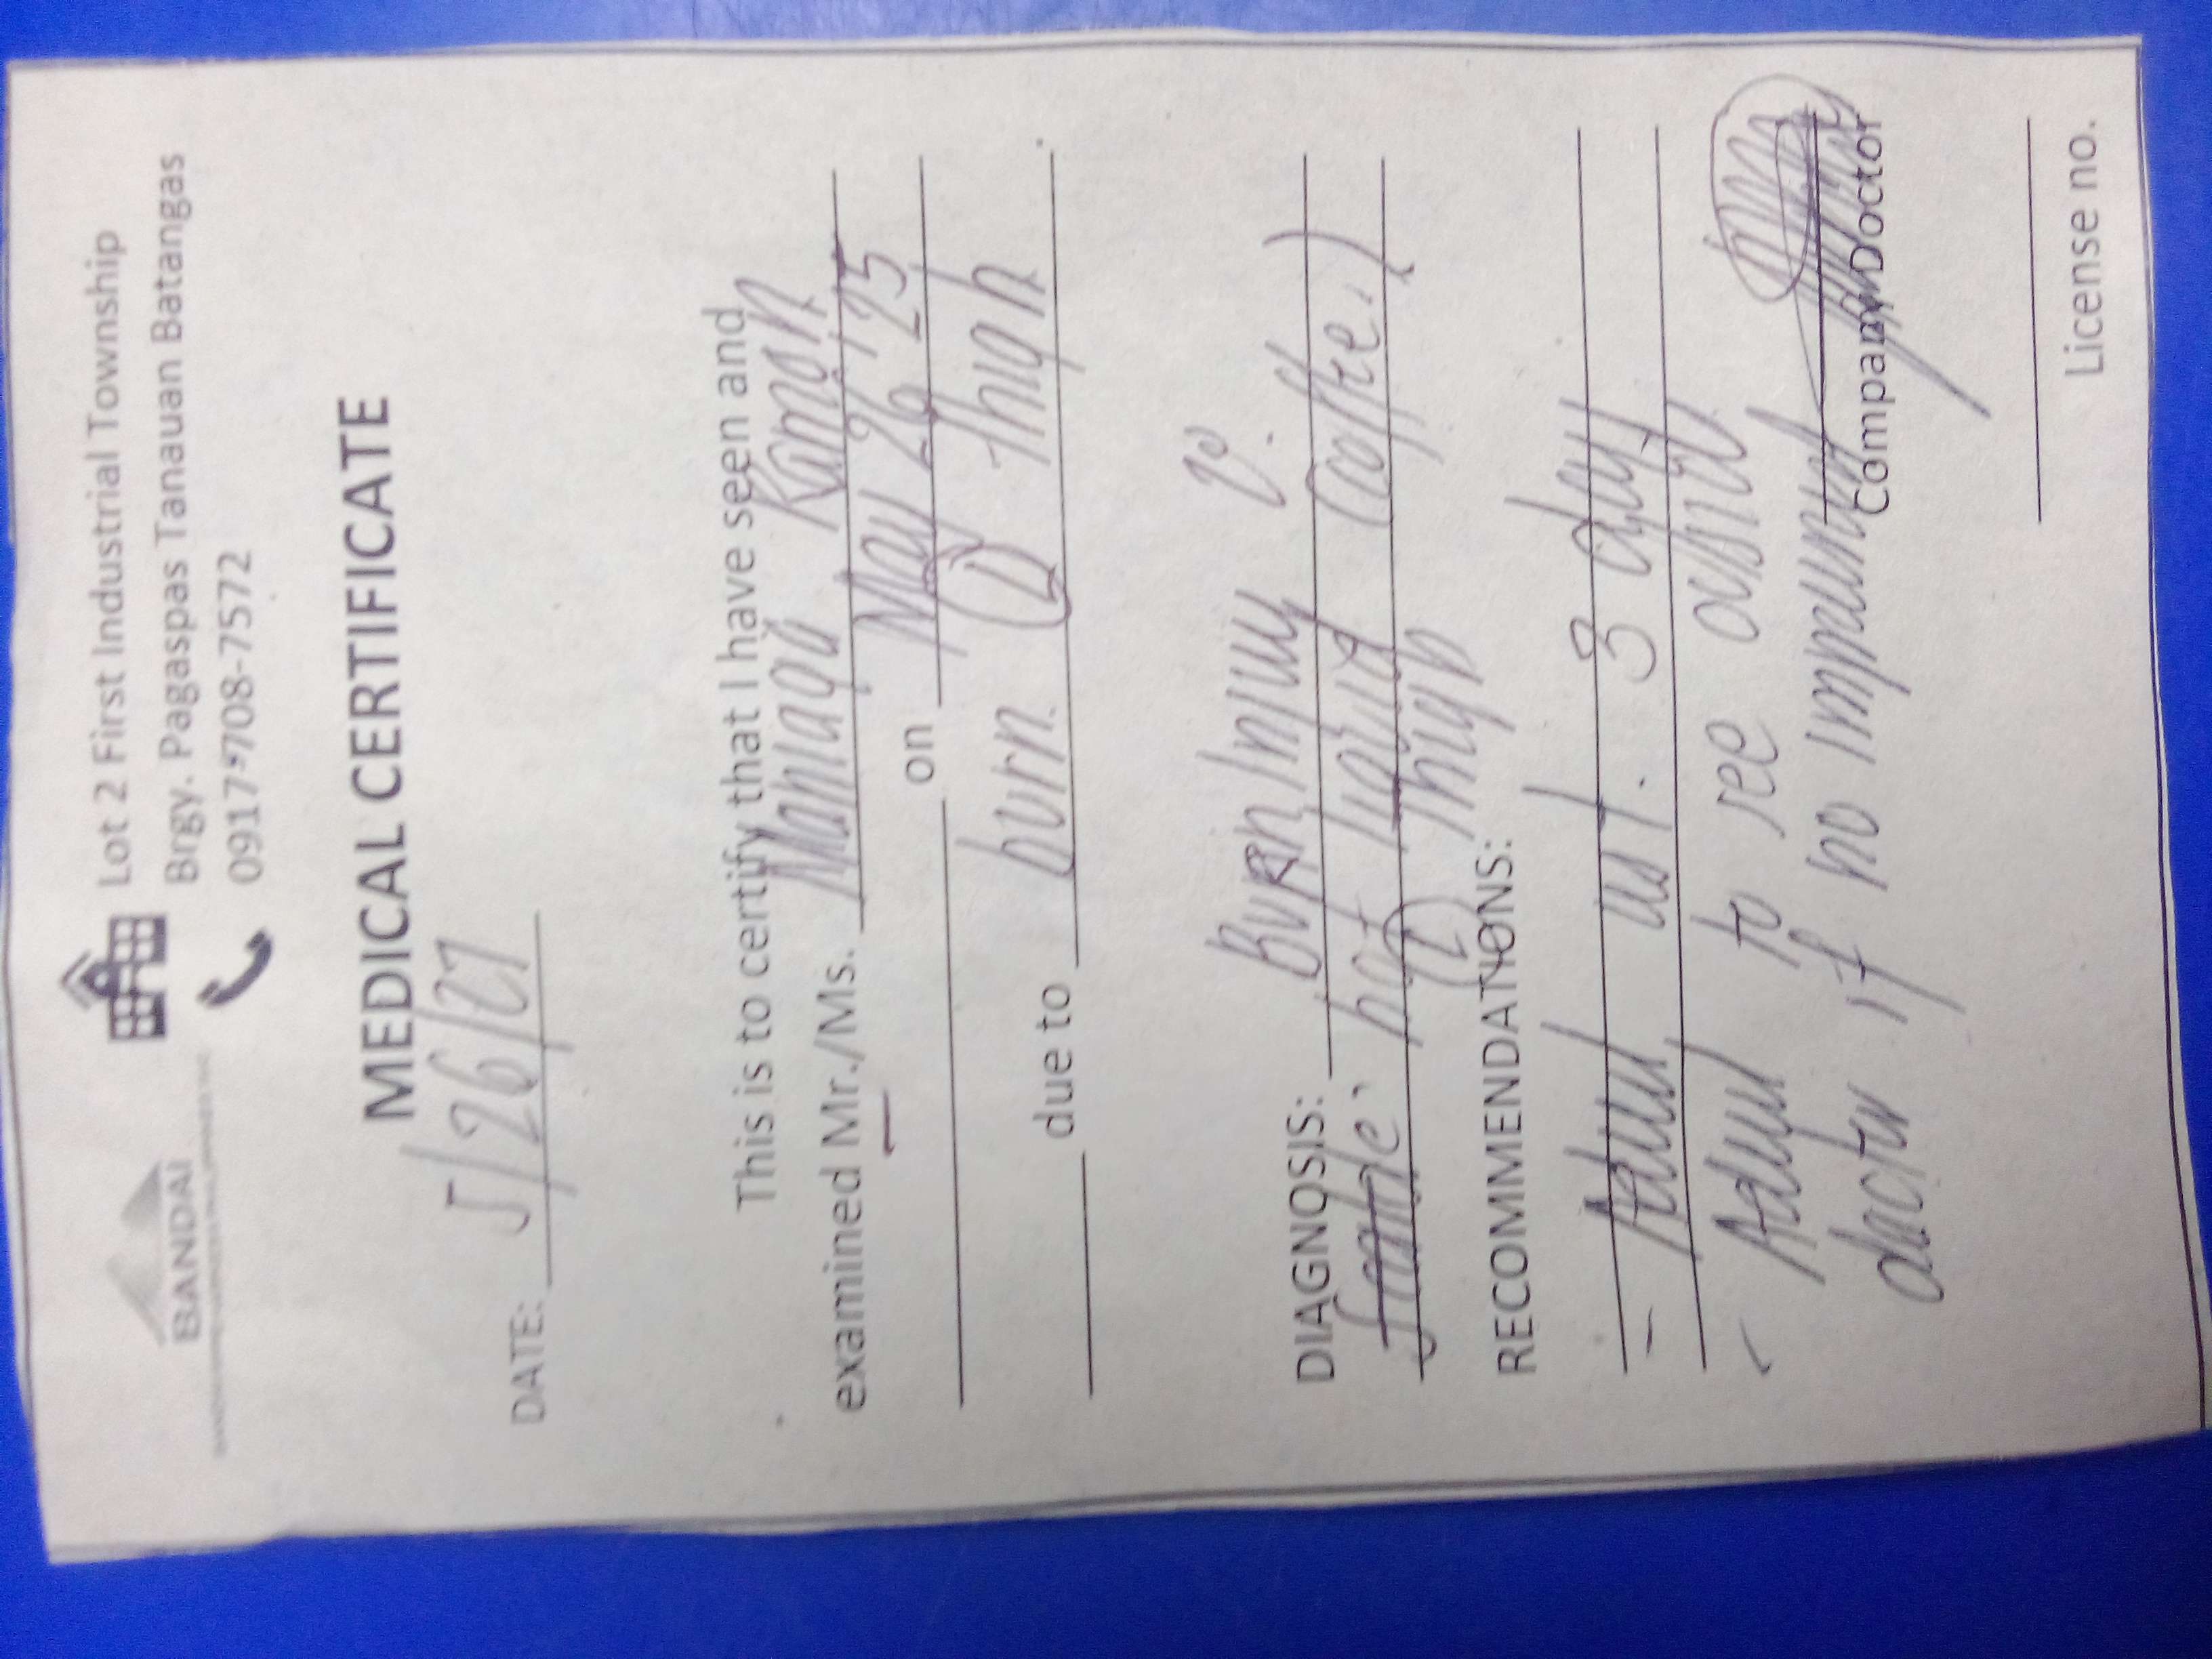 BANDAI
Lot 2 First Industrial Township
Brgy. Pagaspas Tanauan Batangas
0917-708-7572
MEDICAL CERTIFICATE
DATE: 5/26/
This is to certify that I have seen and
examined Mr./Ms. Ramon
on May 26, 25
due to burn (L) Thigh
DIAGNOSIS: Burn Injury 2°
hot liquid (coffee.)
(L) Thigh
RECOMMENDATIONS:
- Advise 3 day
- Advise to see
doctor if no improvement
Company Doctor
License no.